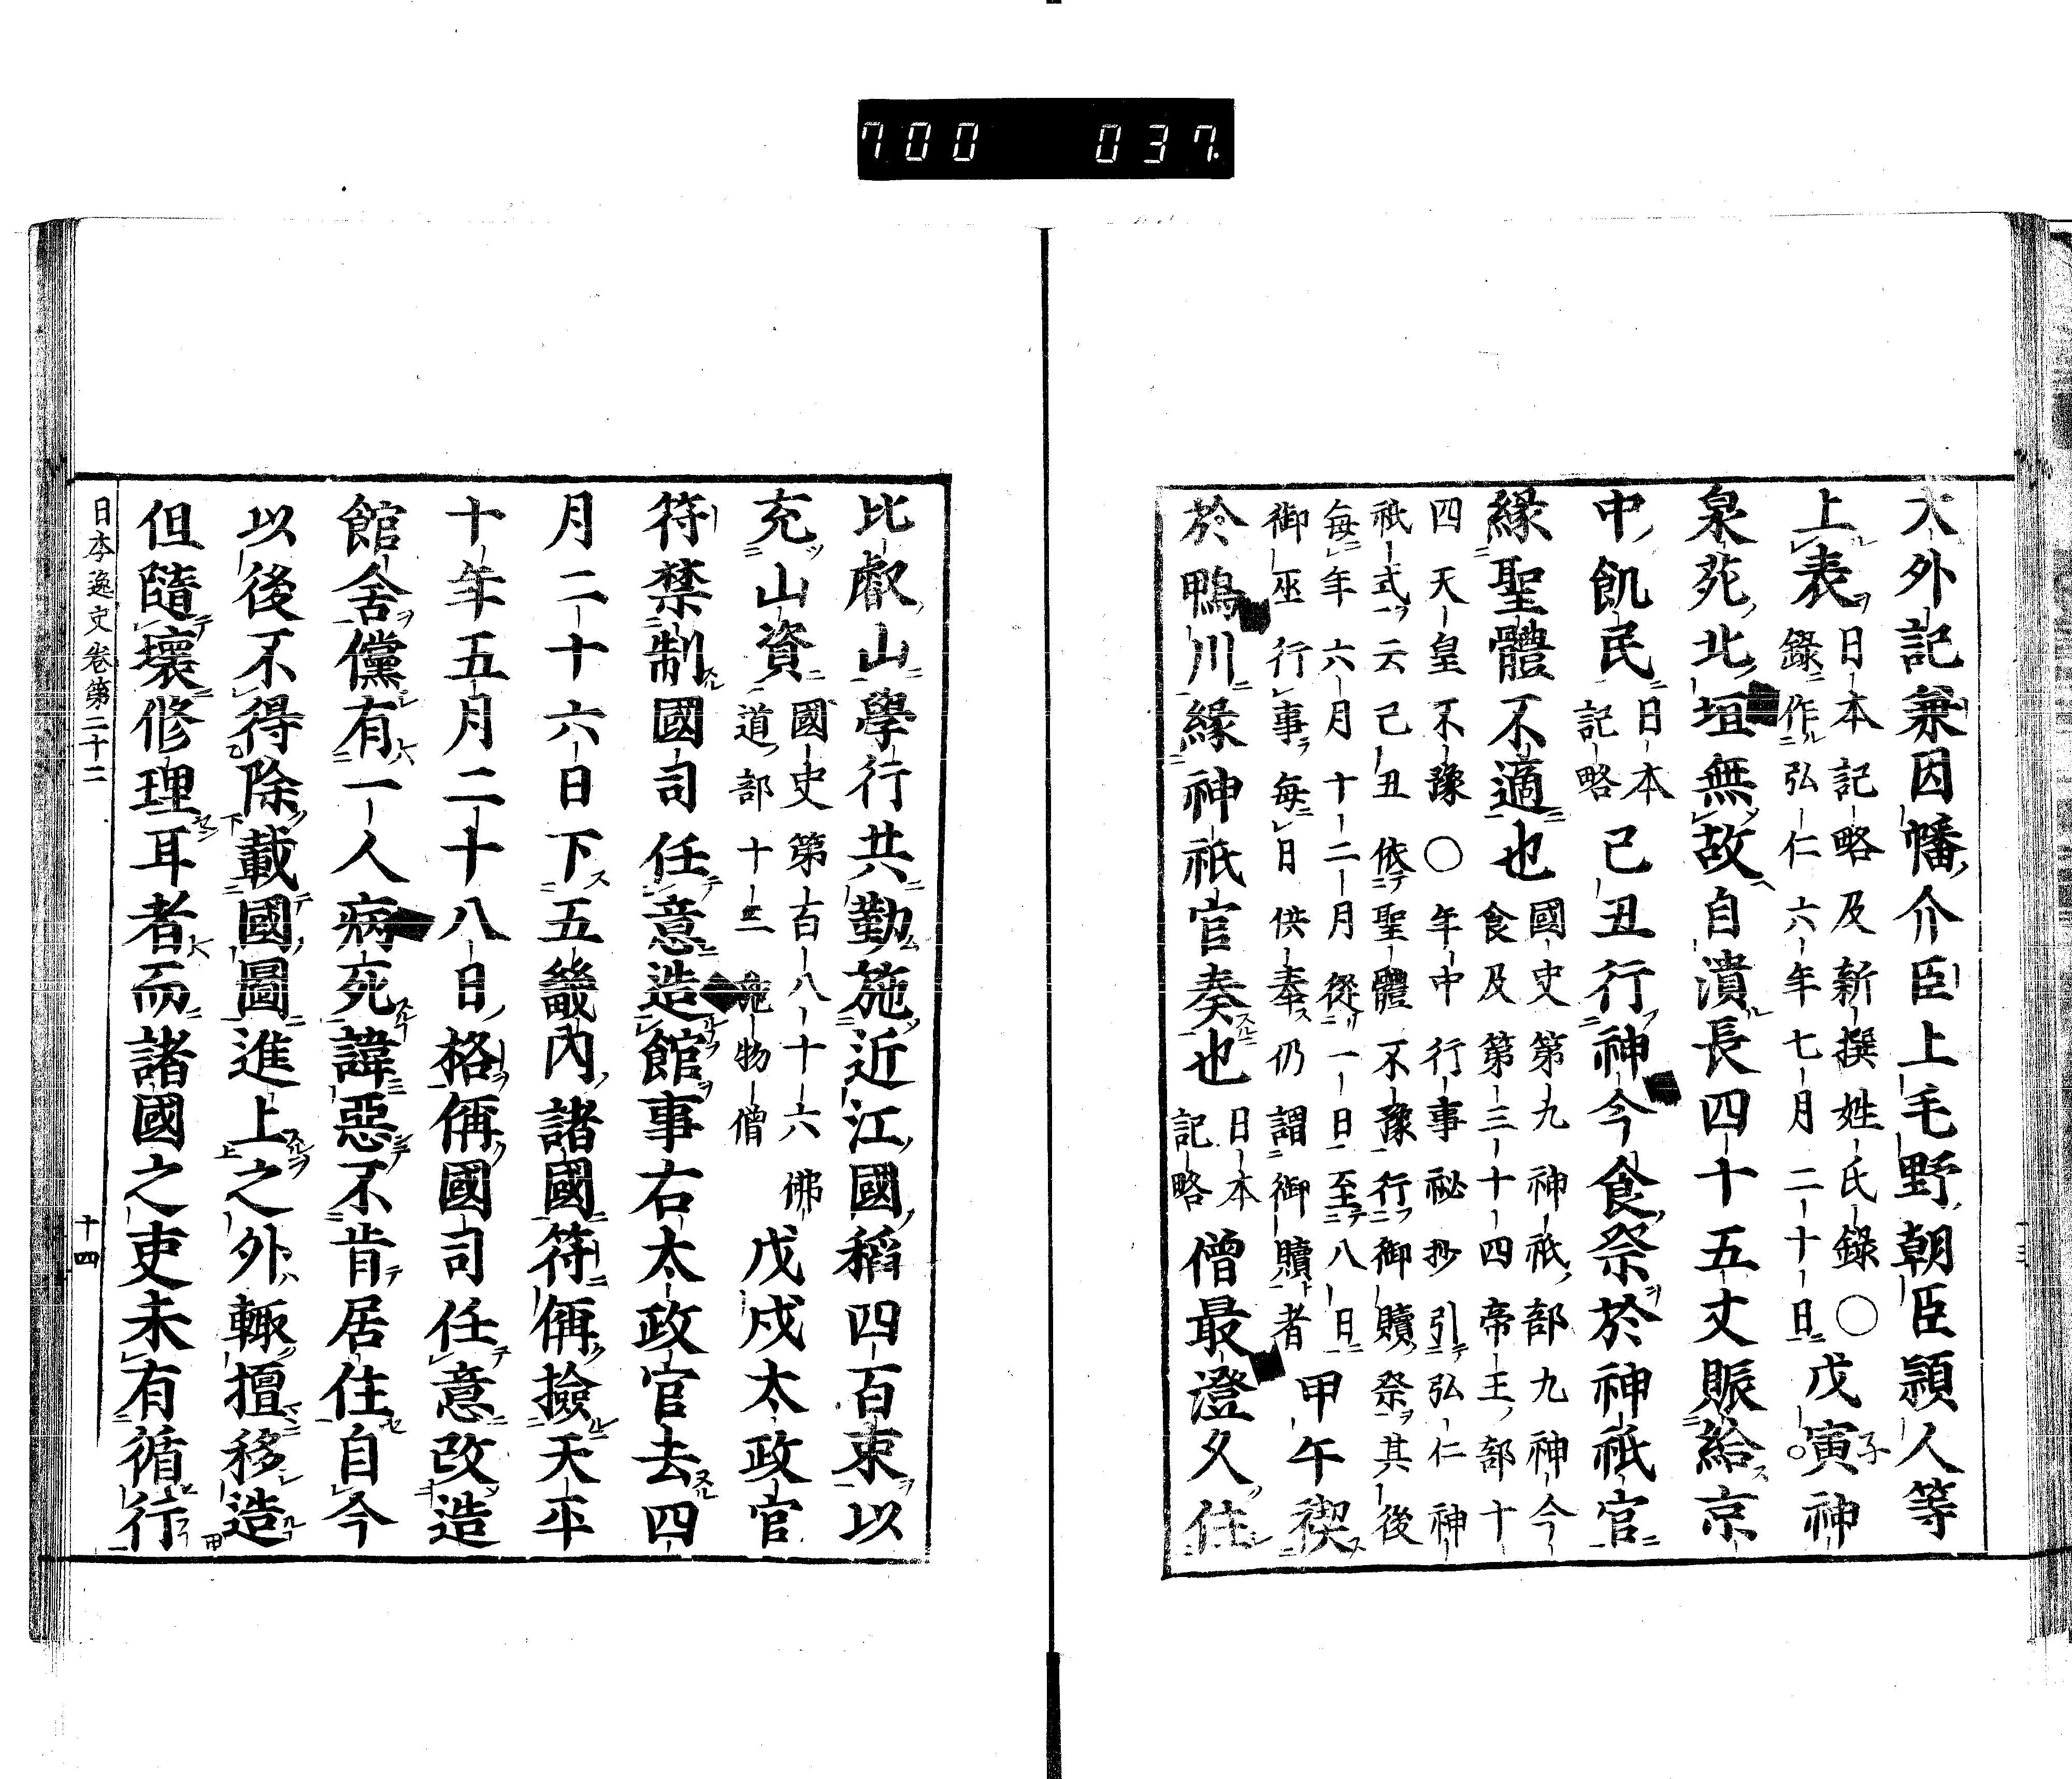 700 037
大外記兼因幡介臣上毛野朝臣頴人等
上表日本記略及新撰姓氏錄○
錄作弘仁六年七月二十日戊寅子神
泉苑北垣無故自潰長四十五丈賑給京
中飢民日本
記略己丑行神今食祭於神祇官
緣聖體不適也國史第九神祇部九神今
食及第三十四帝王部十
四天皇不豫○年中行事祕抄引弘仁神
祇式云己丑依聖體不豫行御贖祭其後
每年六月十二月從一日至八日
御巫行事每日供奉仍謂御贖者甲午禊
於鴨川緣神祇官奏也日本
記略僧最澄久住
比叡山學行共勤施近江國稻四百束以
充山資國史第百八十六佛
道部十三施物僧戊戌太政官
符禁制國司任意造館事右太政官去四
月二十六日下五畿內諸國符偁撿天平
十年五月二十八日格偁國司任意改造
館舍儻有一人病死諱惡不肯居住自今
以後不得除載國圖進上之外輙擅移造
但隨壞修理耳者而諸國之吏未有循行
日本逸史卷第二十二 十四